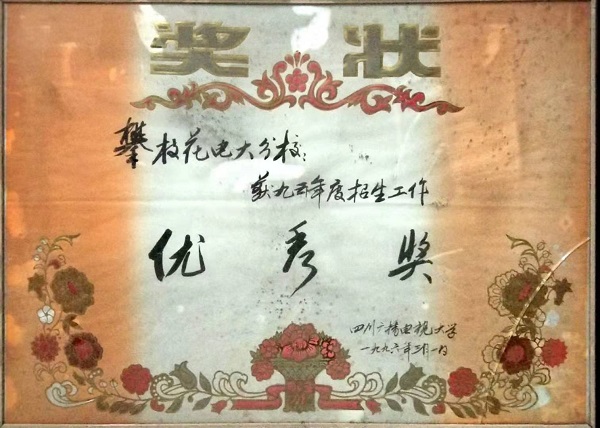 奖状
攀枝花电大分校:
获九五年度招生工作
优秀奖
四川广播电视大学
一九九六年三月一日